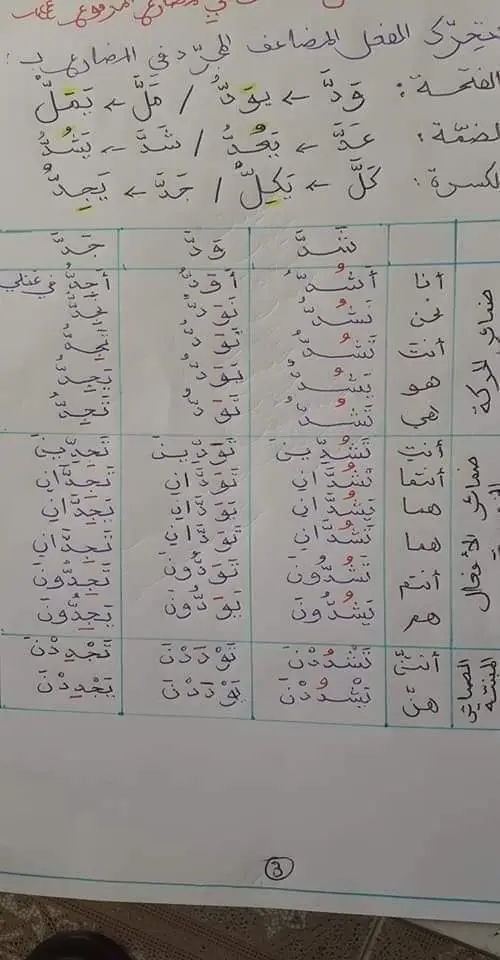 في المضارع المرفوع
يتحرّك الفعل المضاعف المجرّد في المضارع بـ :
الفتحة : وَدَّ ← يَوَدُّ / مَلَّ ← يَمَلُّ
لضمّة : عَدَّ ← يَعُدُّ / شَدَّ ← يَشُدُّ
لكسرة : كَلَّ ← يَكِلُّ / جَدَّ ← يَجِدُّ
شَدَّ وَدَّ جَدَّ
أنا أَشُدُّ أَوَدُّ أَجِدُّ في عملي
نحن نَشُدُّ نَوَدُّ نَجِدُّ
أنتَ تَشُدُّ تَوَدُّ تَجِدُّ
هو يَشُدُّ يَوَدُّ يَجِدُّ
هي تَشُدُّ تَوَدُّ تَجِدُّ
أنتِ تَشُدِّينَ تَوَدِّينَ تَجِدِّينَ
أنتما تَشُدَّانِ تَوَدَّانِ تَجِدَّانِ
هما يَشُدَّانِ يَوَدَّانِ يَجِدَّانِ
هما تَشُدَّانِ تَوَدَّانِ تَجِدَّانِ
أنتم تَشُدُّونَ تَوَدُّونَ تَجِدُّونَ
هم يَشُدُّونَ يَوَدُّونَ يَجِدُّونَ
أنتنّ تَشْدُدْنَ تَوْدَدْنَ تَجْدِدْنَ
هنّ يَشْدُدْنَ يَوْدَدْنَ يَجْدِدْنَ
ضمائر الحركة
ضمائر الأفعال
الضمائر
المبنيّة
3